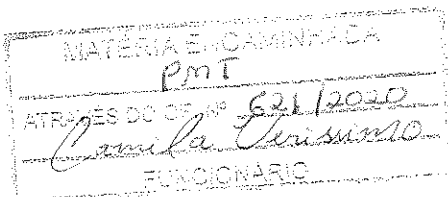 MATÉRIA ENCAMINHADA
PMT
ATRAVÉS DO OF. Nº 621/2020
Camila Verissimo
FUNCIONÁRIO